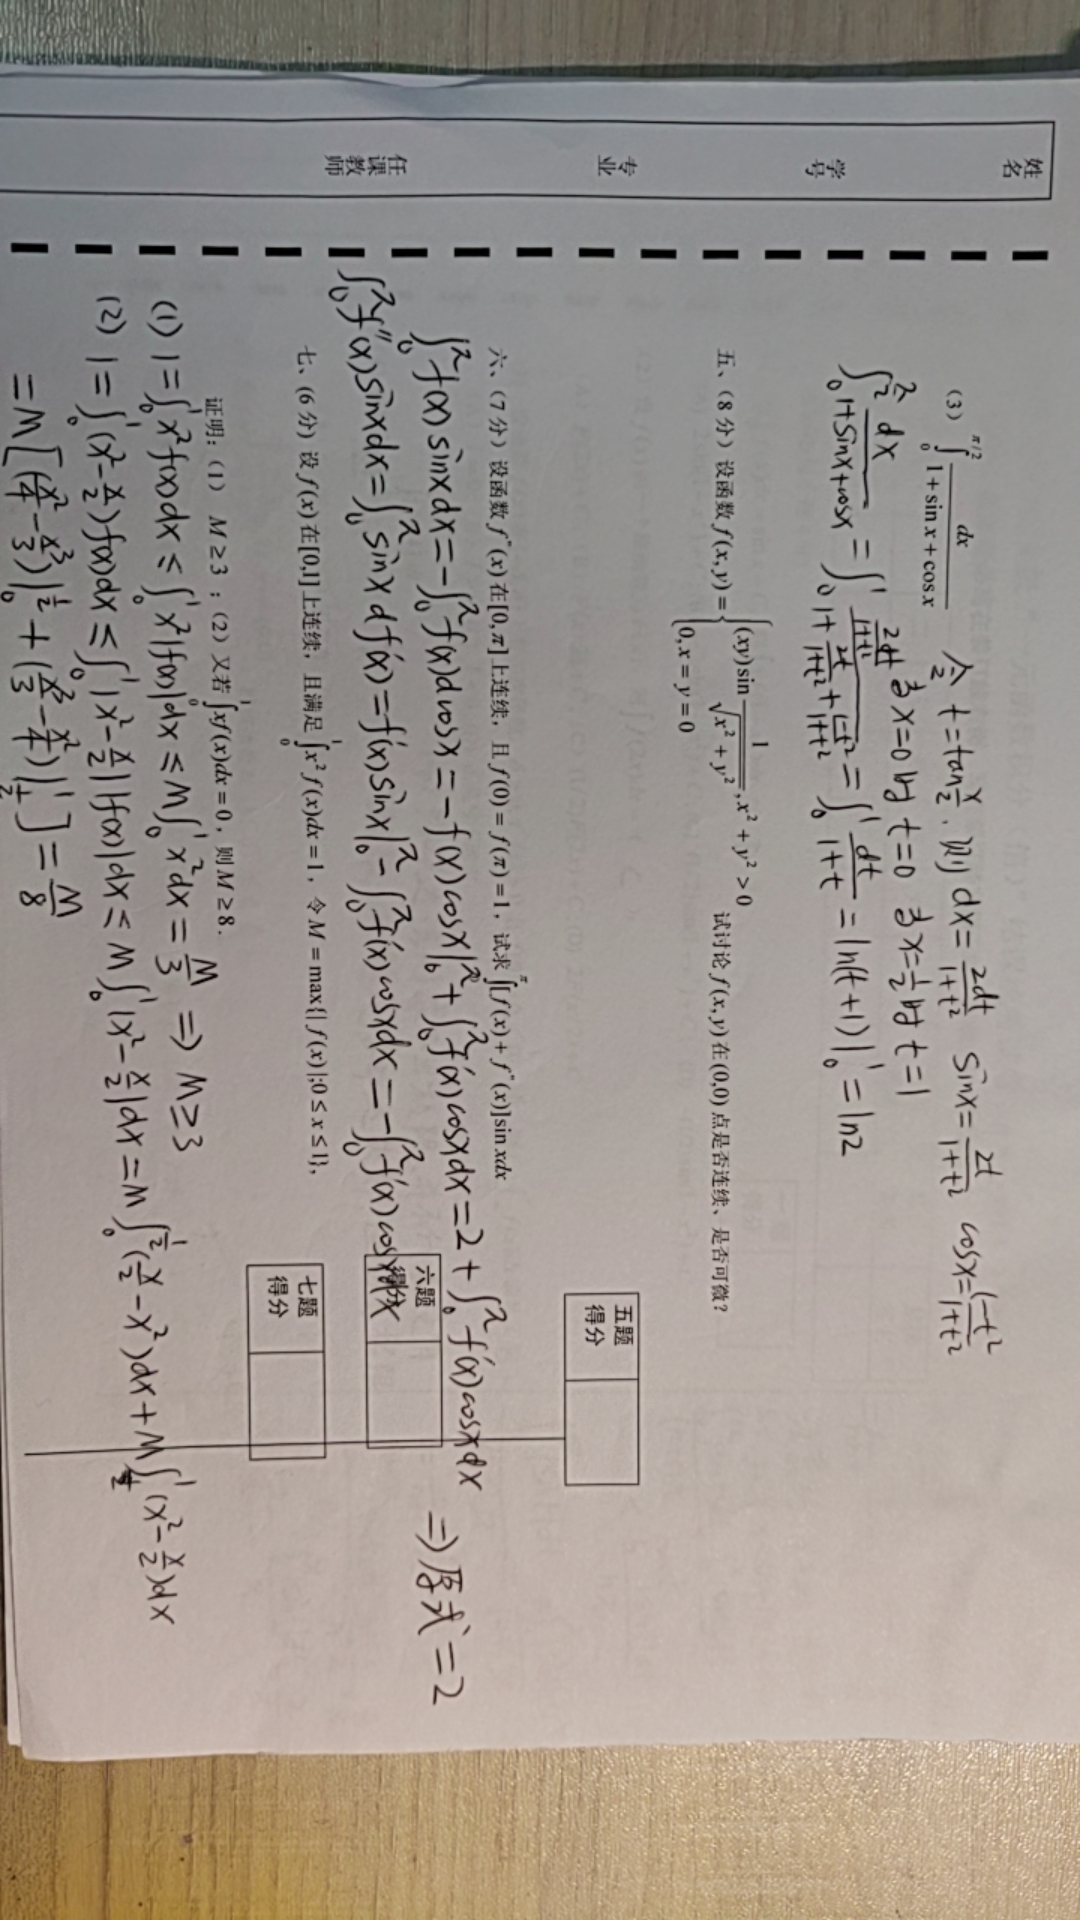 姓名
学号
专业
任课教师
(3) ∫₀^{π/2} dx/(1+sin x+cos x) 令 t=tan x/2, 则 dx=2dt/(1+t²) sinx=2t/(1+t²) cosx=(1-t²)/(1+t²)
当x=0时 t=0 当x=π/2时 t=1
∫₀^{π/2} dx/(1+sinx+cosx) = ∫₀¹ (2dt/(1+t²))/(1+2t/(1+t²)+(1-t²)/(1+t²)) = ∫₀¹ dt/(1+t) = ln(t+1)|₀¹ = ln2
五、(8 分) 设函数 f(x,y) = { (xy)sin 1/√(x²+y²), x²+y²>0
0, x=y=0
试讨论 f(x,y) 在 (0,0) 点是否连续、是否可微?
五题得分
六、(7 分) 设函数 f''(x) 在 [0,π] 上连续, 且 f(0)=f(π)=1, 试求 ∫₀^π [f(x)+f''(x)]sin xdx
六题得分
∫₀^π f(x)sinxdx=-∫₀^π f(x)dcosx=-f(x)cosx|₀^π+∫₀^π f'(x)cosxdx=2+∫₀^π f'(x)cosxdx
∫₀^π f''(x)sinxdx=∫₀^π sinx df'(x)=f'(x)sinx|₀^π-∫₀^π f'(x)cosxdx=-∫₀^π f'(x)cosxdx
⇒原式=2
七、(6 分) 设 f(x) 在[0,1] 上连续, 且满足 ∫₀¹ x²f(x)dx=1, 令 M=max{|f(x)|;0≤x≤1},
七题得分
证明: (1) M≥3 ; (2) 又若 ∫₀¹ xf(x)dx=0, 则 M≥8.
(1) 1=∫₀¹ x²f(x)dx ≤ ∫₀¹ x²|f(x)|dx ≤ M∫₀¹ x²dx = M/3 ⇒ M≥3
(2) 1=∫₀¹ (x²-x/2)f(x)dx ≤ ∫₀¹ |x²-x/2||f(x)|dx ≤ M∫₀¹ |x²-x/2|dx = M∫₀^{1/2} (x/2-x²)dx+M∫_{1/2}¹ (x²-x/2)dx
=M[(x²/4-x³/3)|₀^{1/2}+(x³/3-x²/4)|_{1/2}¹]=M/8